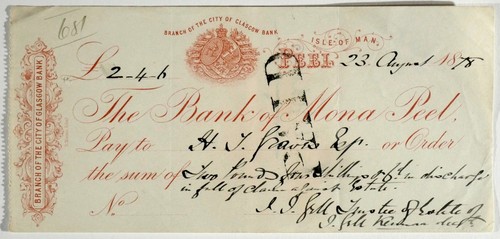 1681
BRANCH OF THE CITY OF GLASGOW BANK
ISLE OF MAN.
PEEL, 23 August 1878
£ 2-4-6
PAID
The Bank of Mona Peel,
Pay to H. T. Graves Esqr. or Order
the sum of Two Pounds four Shillings & 6d. in discharge
in full of claim against Estate.
No
J. J. Gell Trustee of Estate of
J. Gell
BRANCH OF THE CITY OF GLASGOW BANK